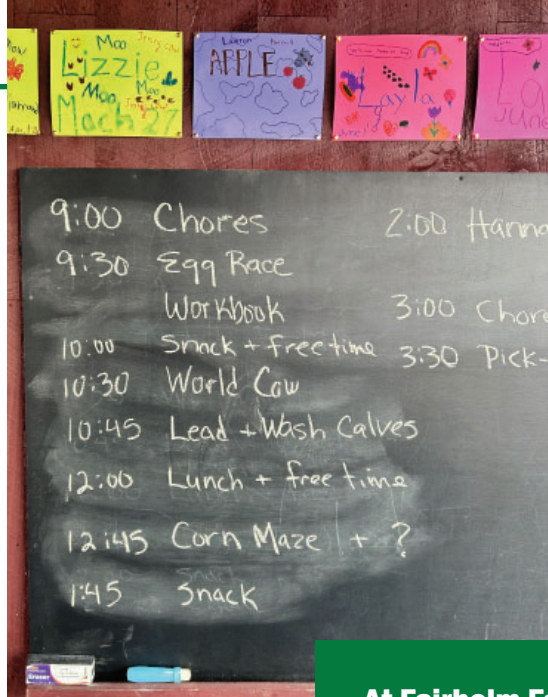 Moo
Lizzie
Moo
Moo
March 27
APPLE
Layla
June
La
June
9:00 Chores
9:30 Egg Race
Workbook
10:00 Snack + free time
10:30 World Cow
10:45 Lead + Wash Calves
12:00 Lunch + free time
12:45 Corn Maze + ?
1:45 Snack
2:00 Hanna
3:00 Chore
3:30 Pick-
Eraser
At Fairholm F